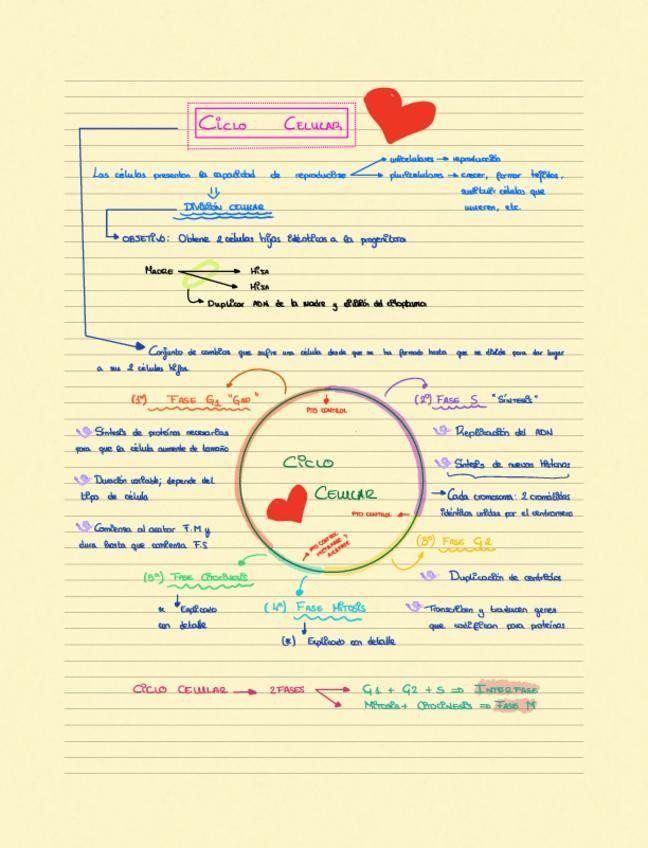 Ciclo Celular
Las células presentan la capacidad de reproducirse
unicelulares → reproducción
pluricelulares → crecer, formar tejidos,
sustituir células que
mueren, etc.
⇓
División celular
Objetivo: Obtener 2 células hijas idénticas a la progenitora
Madre → Hija
Hija
Duplicar ADN de la madre y división del citoplasma
Conjunto de cambios que sufre una célula desde que se ha formado hasta que se divide para dar lugar
a sus 2 células hijas.
(1º) Fase G1 "Gap"
Síntesis de proteínas necesarias
para que la célula aumente de tamaño
Duración variable; depende del
tipo de célula
Comienza al acabar F.M y
dura hasta que comienza F.S
(2º) Fase S "Síntesis"
Replicación del ADN
Síntesis de nuevas Histonas
→ Cada cromosoma: 2 cromátidas
idénticas unidas por el centrómero
Pto control
Ciclo
Celular
Pto control
Pto control
(3º) Fase G2
Duplicación de centriolos
Transcriben y traducen genes
que codifican para proteínas
(5º) Fase Citocinesis
* Explicado
con detalle
(4º) Fase Mitosis
(*) Explicado con detalle
Ciclo celular → 2 fases
G1 + G2 + S ⇒ Interfase
Mitosis + Citocinesis ⇒ Fase M